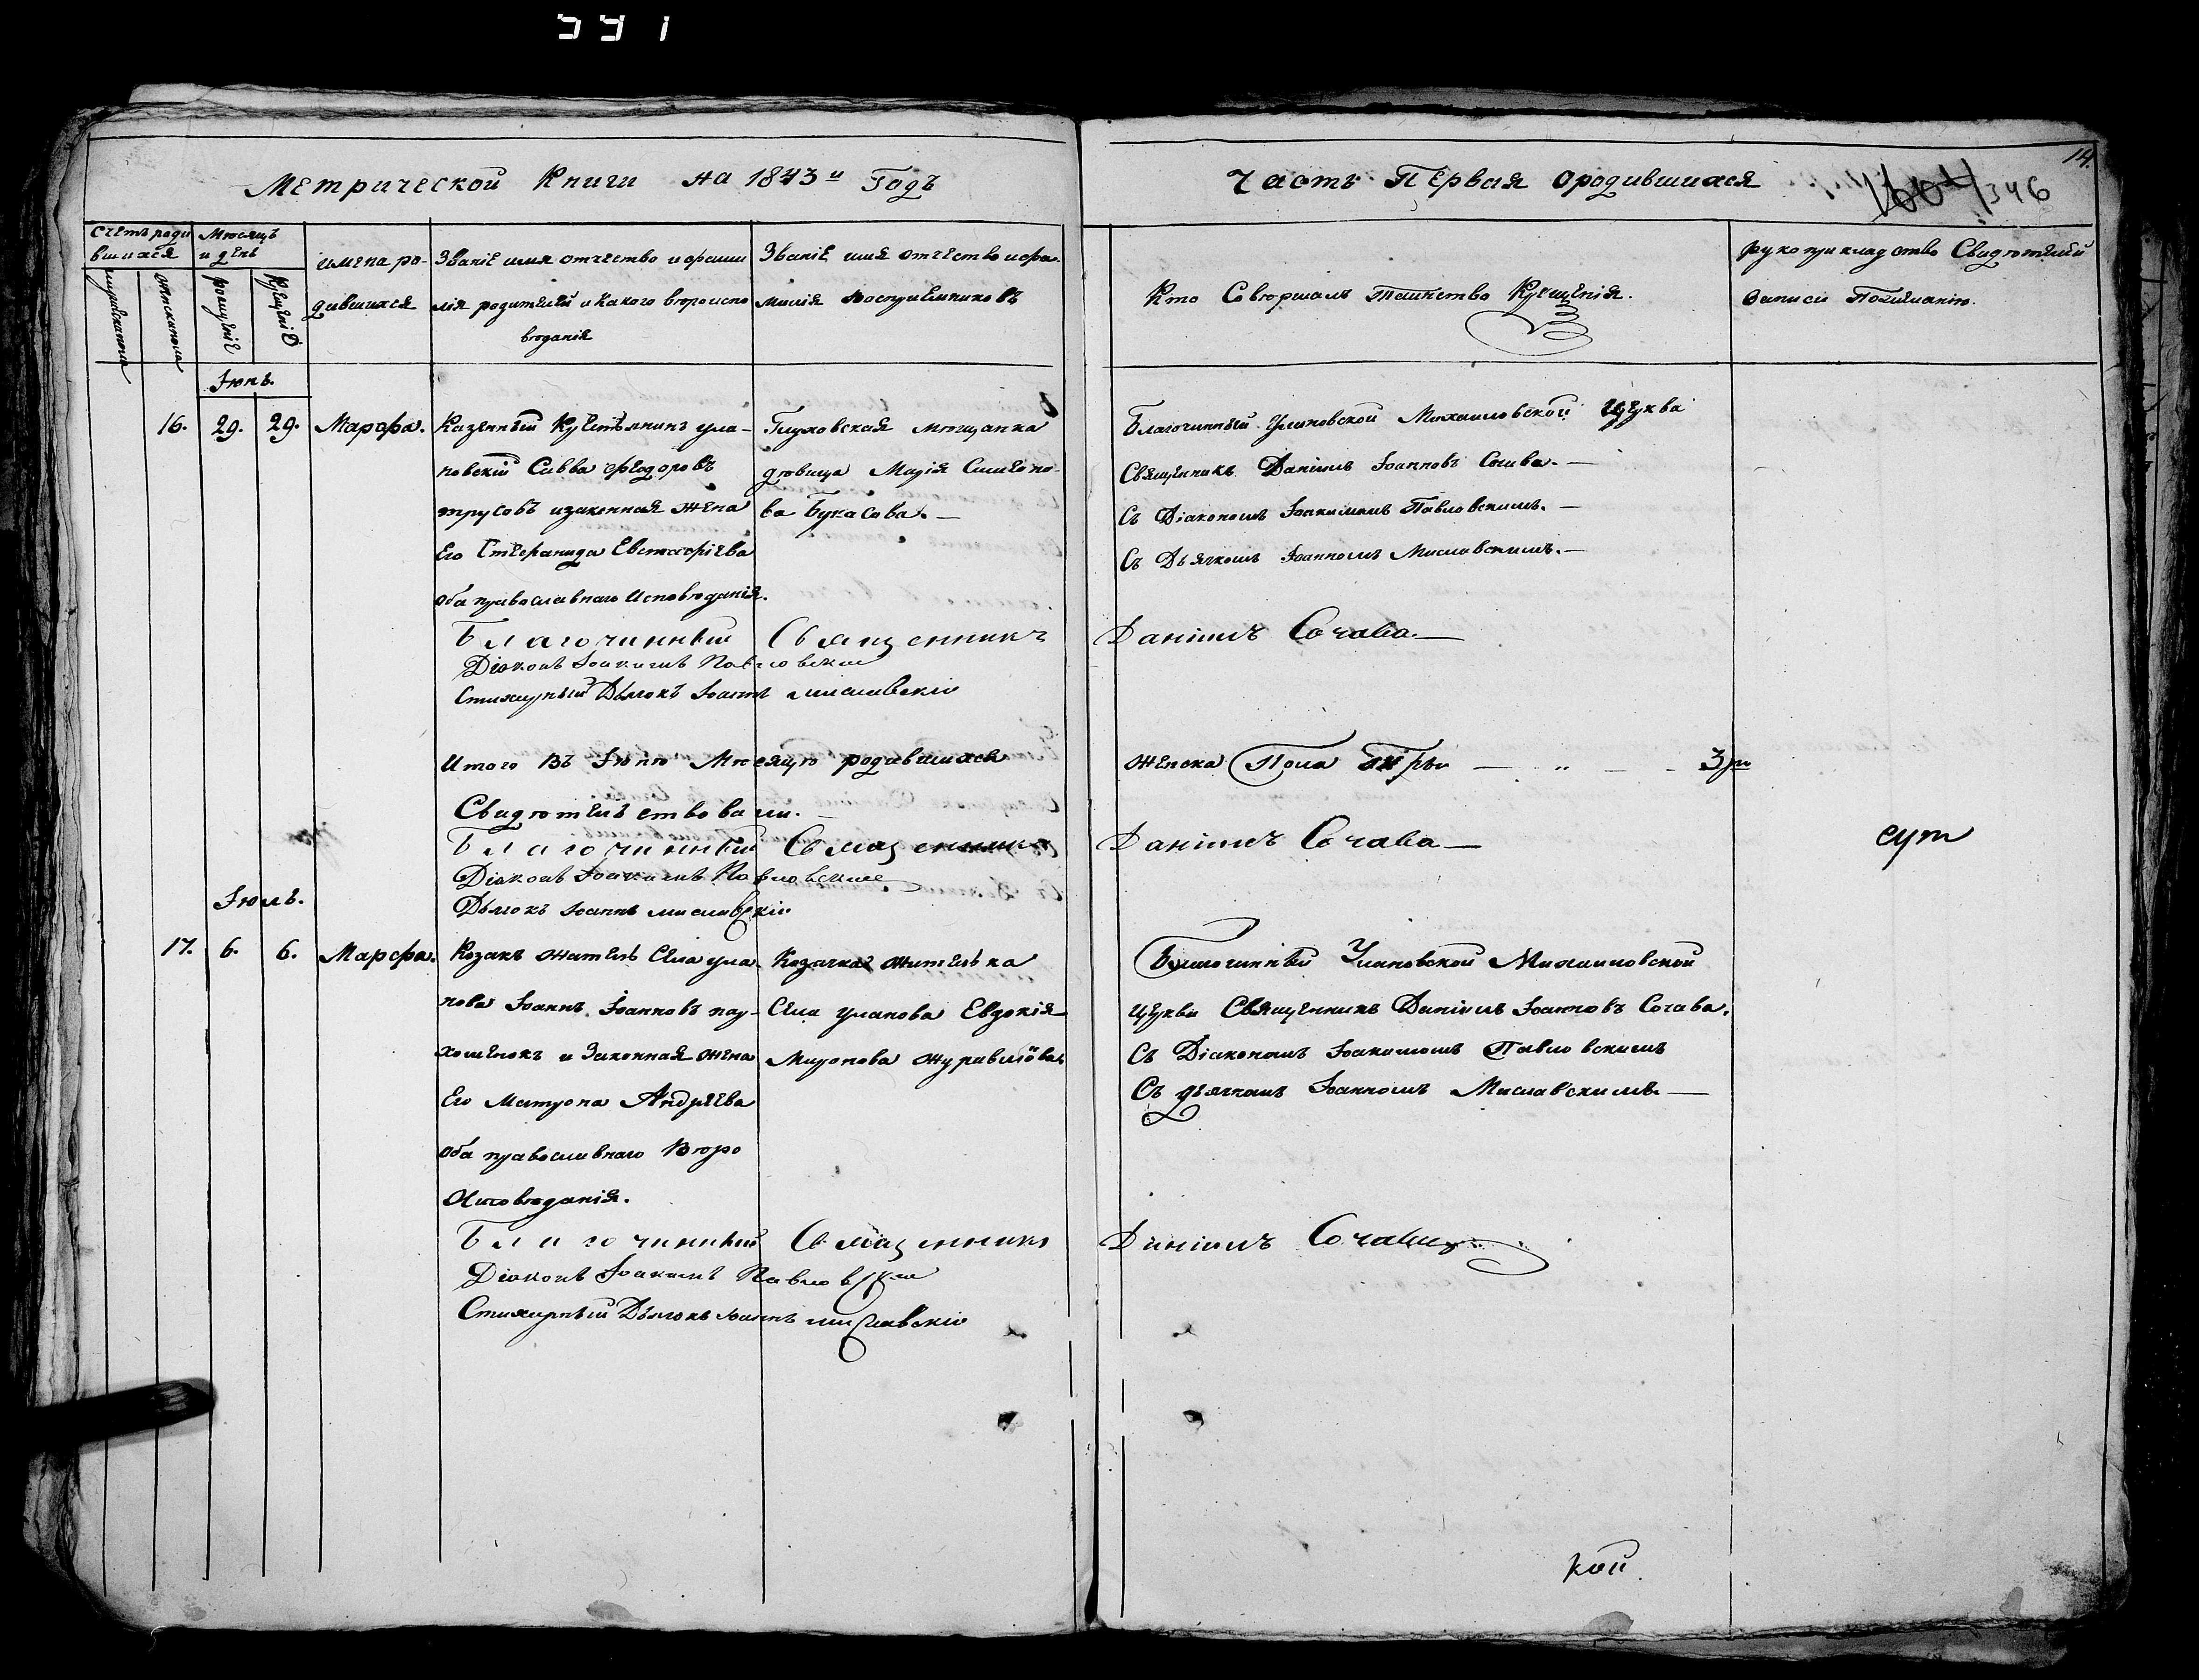 591
Метрической Книги на 1843й Годъ
Часть Первая ородившихся
14.
1604/346
Счетъ роди
вшихся
Мѣсяцъ
и день
мужескаго
женскаго
рожденіе
Крещеніе
имена ро-
дившихся
Званіе имя отчество и фами
лія родителей и какого вѣроиспо
вѣданія
Званіе имя отчество и фа-
милія воспріемниковъ
Кто Совершалъ таинство Крещенія.
рукоприкладство Свидѣтелей
записи По желанію.
Іюнь.
16. 29. 29. Марѳа.
Казенный Крестьянинъ ула-
новскій Савва Федоровъ
трусовъ изаконная жена
Его Стефанида Евстафіева
оба православнаго Исповѣданія.
Глуховская мѣщанка
дѣвица Марія Симеоно-
ва Букасова.—
Благочинный Улановской Михаиловской Церкви
Священникъ Даніилъ Іоанновъ Сочава.—
Съ Діакономъ Іоакимомъ Павловскимъ.—
Съ Дьячкомъ Іоанномъ Миславскимъ.—
Благочинный Священникъ Даніилъ Сочава.—
Діаконъ Іоакимъ Павловскій
Стихарный Дьячокъ Іоаннъ Миславскій
Итого Въ Іюнѣ Мѣсяцѣ родившихся женска Пола три — „ — - 3ри
Свидѣтельствовали.
Благочинный Священникъ Даніилъ Сочава—
сут
Діаконъ Іоакимъ Павловскій
Дьячокъ Іоаннъ миславскій
Іюль.
17. 6. 6. Марфа.
Козакъ житель Села ула
нова Іоаннъ Іоанновъ пау-
и Законная жена
Его Матрона Андреева
оба православнаго Вѣро
Исповѣданія.
Козачка жителька
Села уланова Евдокія
Миронова журавлёва
Благочинный Улановской Михаиловской
церкви Священникъ Даніилъ Іоанновъ Сочава.
Съ Діакономъ Іоакимомъ Павловскимъ
Съ дьячкомъ Іоанномъ Миславскимъ.—
Благочинный Священникъ Даніилъ Сочава
Діаконъ Іоакимъ Павловскій
Стихарный Дьячокъ Іоаннъ миславскій
кой